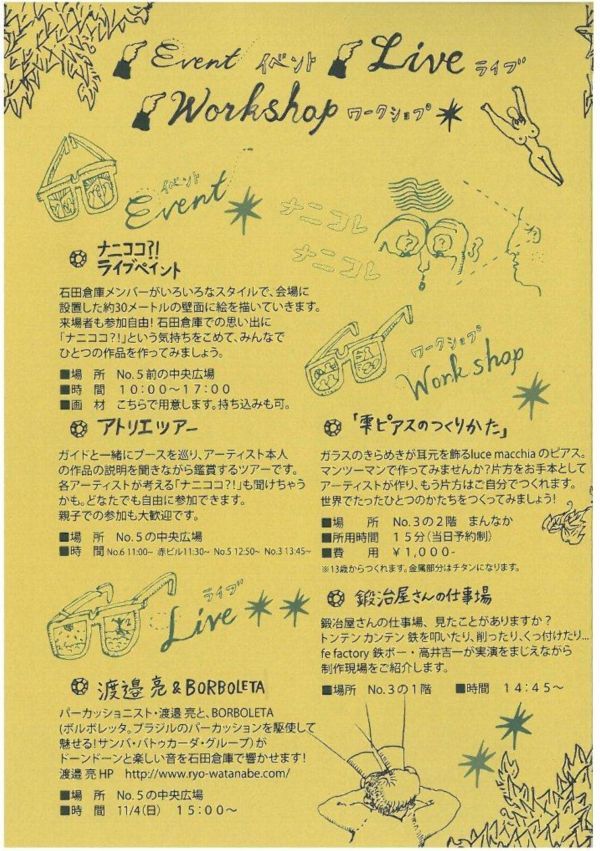 Event イベント Live ライブ
Workshop ワークショップ
イベント
Event
ナニコレ
ナニコレ
ナニココ?!
ライブペイント
石田倉庫メンバーがいろいろなスタイルで、会場に
設置した約30メートルの壁面に絵を描いていきます。
来場者も参加自由! 石田倉庫での思い出に
「ナニココ?!」という気持ちをこめて、みんなで
ひとつの作品を作ってみましょう。
■場 所 No.5前の中央広場
■時 間 10:00〜17:00
■画 材 こちらで用意します。持ち込みも可。
アトリエツアー
ガイドと一緒にブースを巡り、アーティスト本人
の作品の説明を聞きながら鑑賞するツアーです。
各アーティストが考える「ナニココ?!」も聞けちゃう
かも。どなたでも自由に参加できます。
親子での参加も大歓迎です。
■場 所 No.5の中央広場
■時 間 No.6 11:00~ 赤ビル11:30~ No.5 12:50~ No.3 13:45~
ライブ
Live
渡邉 亮 & BORBOLETA
パーカッショニスト・渡邉 亮と、BORBOLETA
(ボルボレッタ。ブラジルのパーカッションを駆使して
魅せる!サンバ・バトゥカーダ・グループ)が
ドーンドーンと楽しい音を石田倉庫で響かせます!
渡邉 亮 HP http://www.ryo-watanabe.com/
■場 所 No.5の中央広場
■時 間 11/4(日) 15:00〜
ワークショップ
Workshop
「雫ピアスのつくりかた」
ガラスのきらめきが耳元を飾るluce macchia のピアス。
マンツーマンで作ってみませんか?片方をお手本として
アーティストが作り、もう片方はご自分でつくれます。
世界でたったひとつのかたちをつくってみましょう!
■場 所 No.3の2階 まんなか
■所用時間 15分(当日予約制)
■費 用 ¥1,000-
※13歳からつくれます。金属部分はチタンになります。
鍛冶屋さんの仕事場
鍛冶屋さんの仕事場、見たことがありますか?
トンテン カンテン 鉄を叩いたり、削ったり、くっ付けたり...
fe factory 鉄ボー・高井吉一が実演をまじえながら
制作現場をご紹介します。
■場所 No.3の1階 ■時間 14:45〜